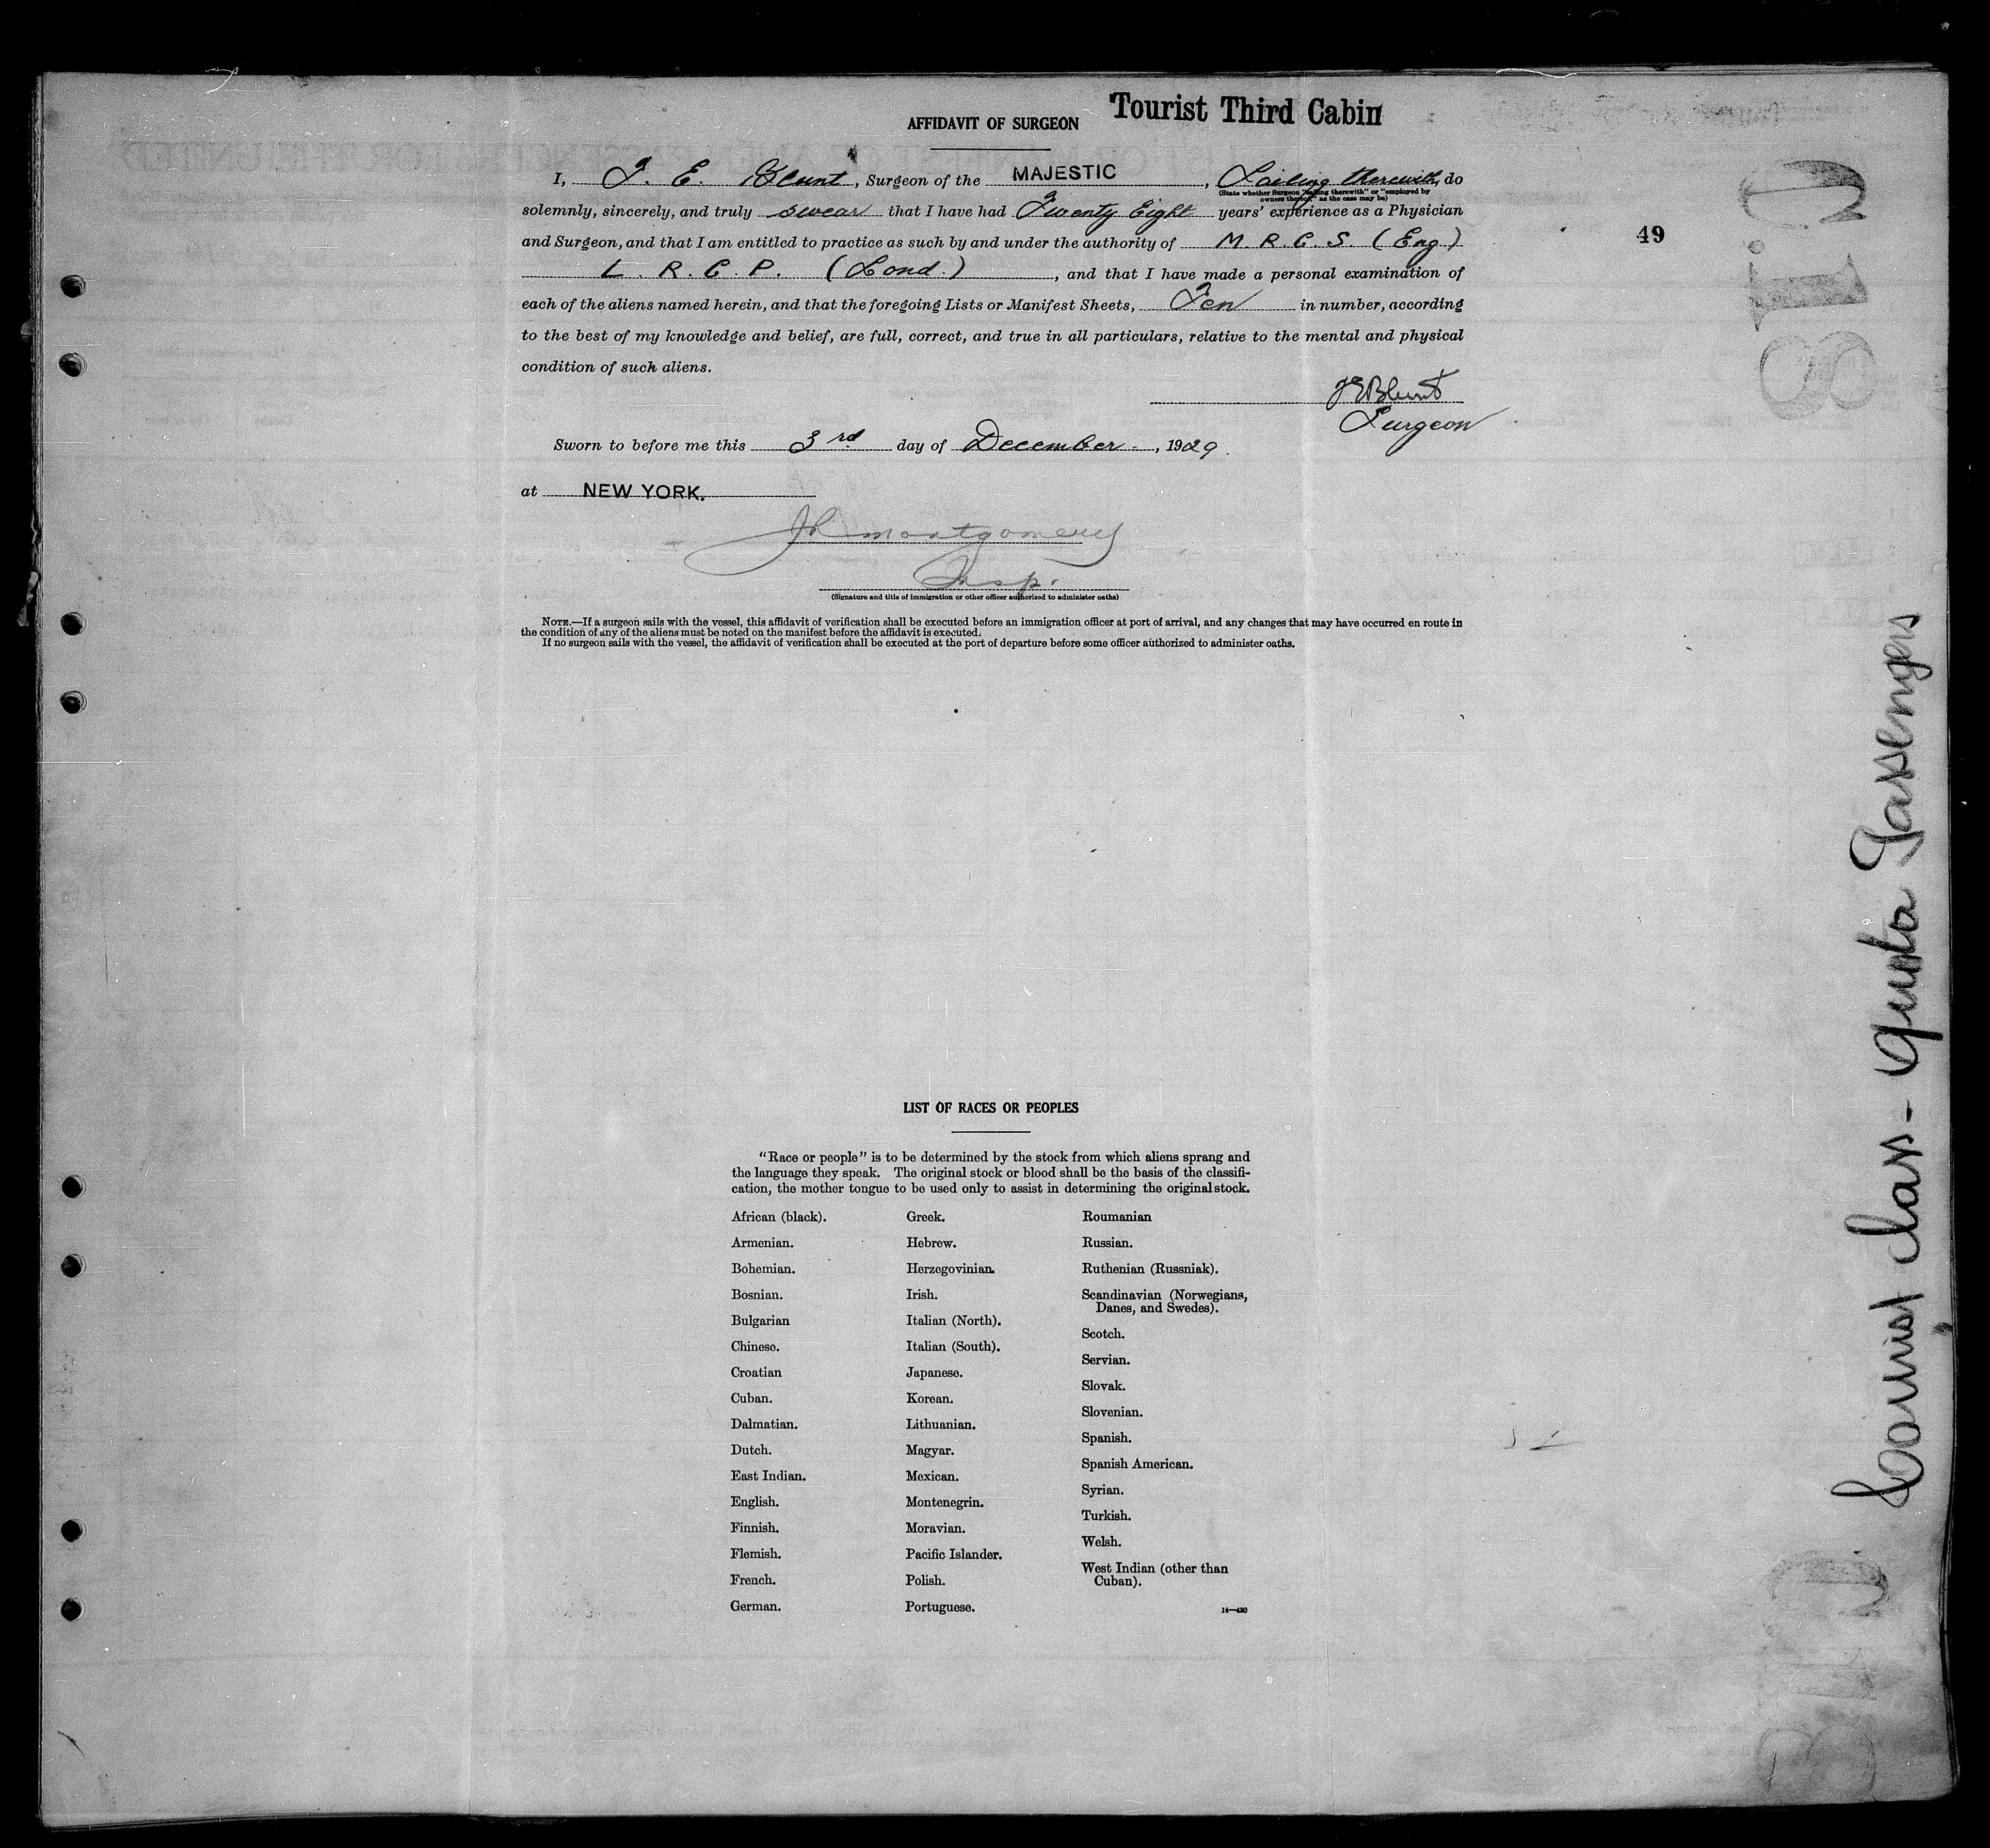 Tourist Third Cabin
AFFIDAVIT OF SURGEON
I, J. E. Blunt, Surgeon of the MAJESTIC, Sailing therewith, do
(State whether Surgeon "sailing therewith" or "employed by
owners thereof," as the case may be)
solemnly, sincerely, and truly swear that I have had Twenty Eight years' experience as a Physician
and Surgeon, and that I am entitled to practice as such by and under the authority of M. R. C. S. (Eng)
L. R. C. P. (Lond.), and that I have made a personal examination of
each of the aliens named herein, and that the foregoing Lists or Manifest Sheets, Ten in number, according
to the best of my knowledge and belief, are full, correct, and true in all particulars, relative to the mental and physical
condition of such aliens.
JEBlunt
Surgeon
Sworn to before me this 3rd day of December, 1929.
at NEW YORK.
JR Montgomery
Insp.
(Signature and title of immigration or other officer authorized to administer oaths)
NOTE.—If a surgeon sails with the vessel, this affidavit of verification shall be executed before an immigration officer at port of arrival, and any changes that may have occurred en route in
the condition of any of the aliens must be noted on the manifest before the affidavit is executed.
If no surgeon sails with the vessel, the affidavit of verification shall be executed at the port of departure before some officer authorized to administer oaths.
49
Tourist class - Quota Passengers
LIST OF RACES OR PEOPLES
"Race or people" is to be determined by the stock from which aliens sprang and
the language they speak. The original stock or blood shall be the basis of the classifi-
cation, the mother tongue to be used only to assist in determining the original stock.
African (black).
Armenian.
Bohemian.
Bosnian.
Bulgarian
Chinese.
Croatian
Cuban.
Dalmatian.
Dutch.
East Indian.
English.
Finnish.
Flemish.
French.
German.
Greek.
Hebrew.
Herzegovinian.
Irish.
Italian (North).
Italian (South).
Japanese.
Korean.
Lithuanian.
Magyar.
Mexican.
Montenegrin.
Moravian.
Pacific Islander.
Polish.
Portuguese.
Roumanian
Russian.
Ruthenian (Russniak).
Scandinavian (Norwegians,
Danes, and Swedes).
Scotch.
Servian.
Slovak.
Slovenian.
Spanish.
Spanish American.
Syrian.
Turkish.
Welsh.
West Indian (other than
Cuban).
14—430